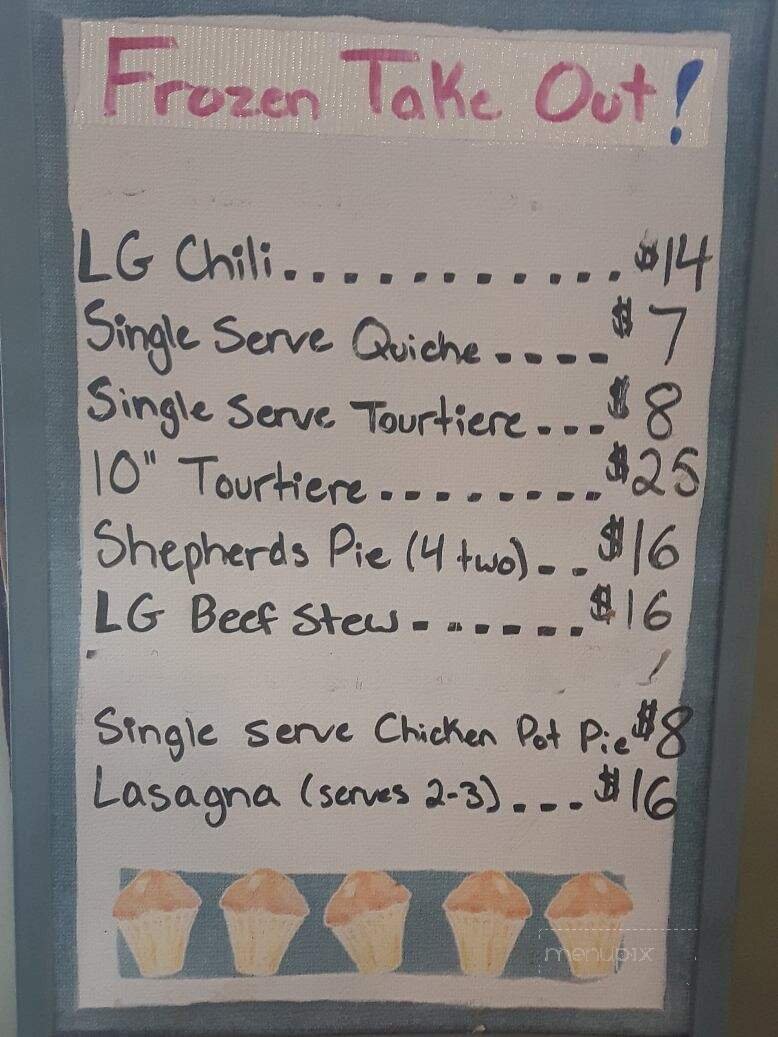 Frozen Take Out!
LG Chili............$14
Single Serve Quiche....$7
Single Serve Tourtiere...$8
10" Tourtiere........$25
Shepherds Pie (4 two)..$16
LG Beef Stew......$16
Single Serve Chicken Pot Pie $8
Lasagna (serves 2-3)...$16
menupix